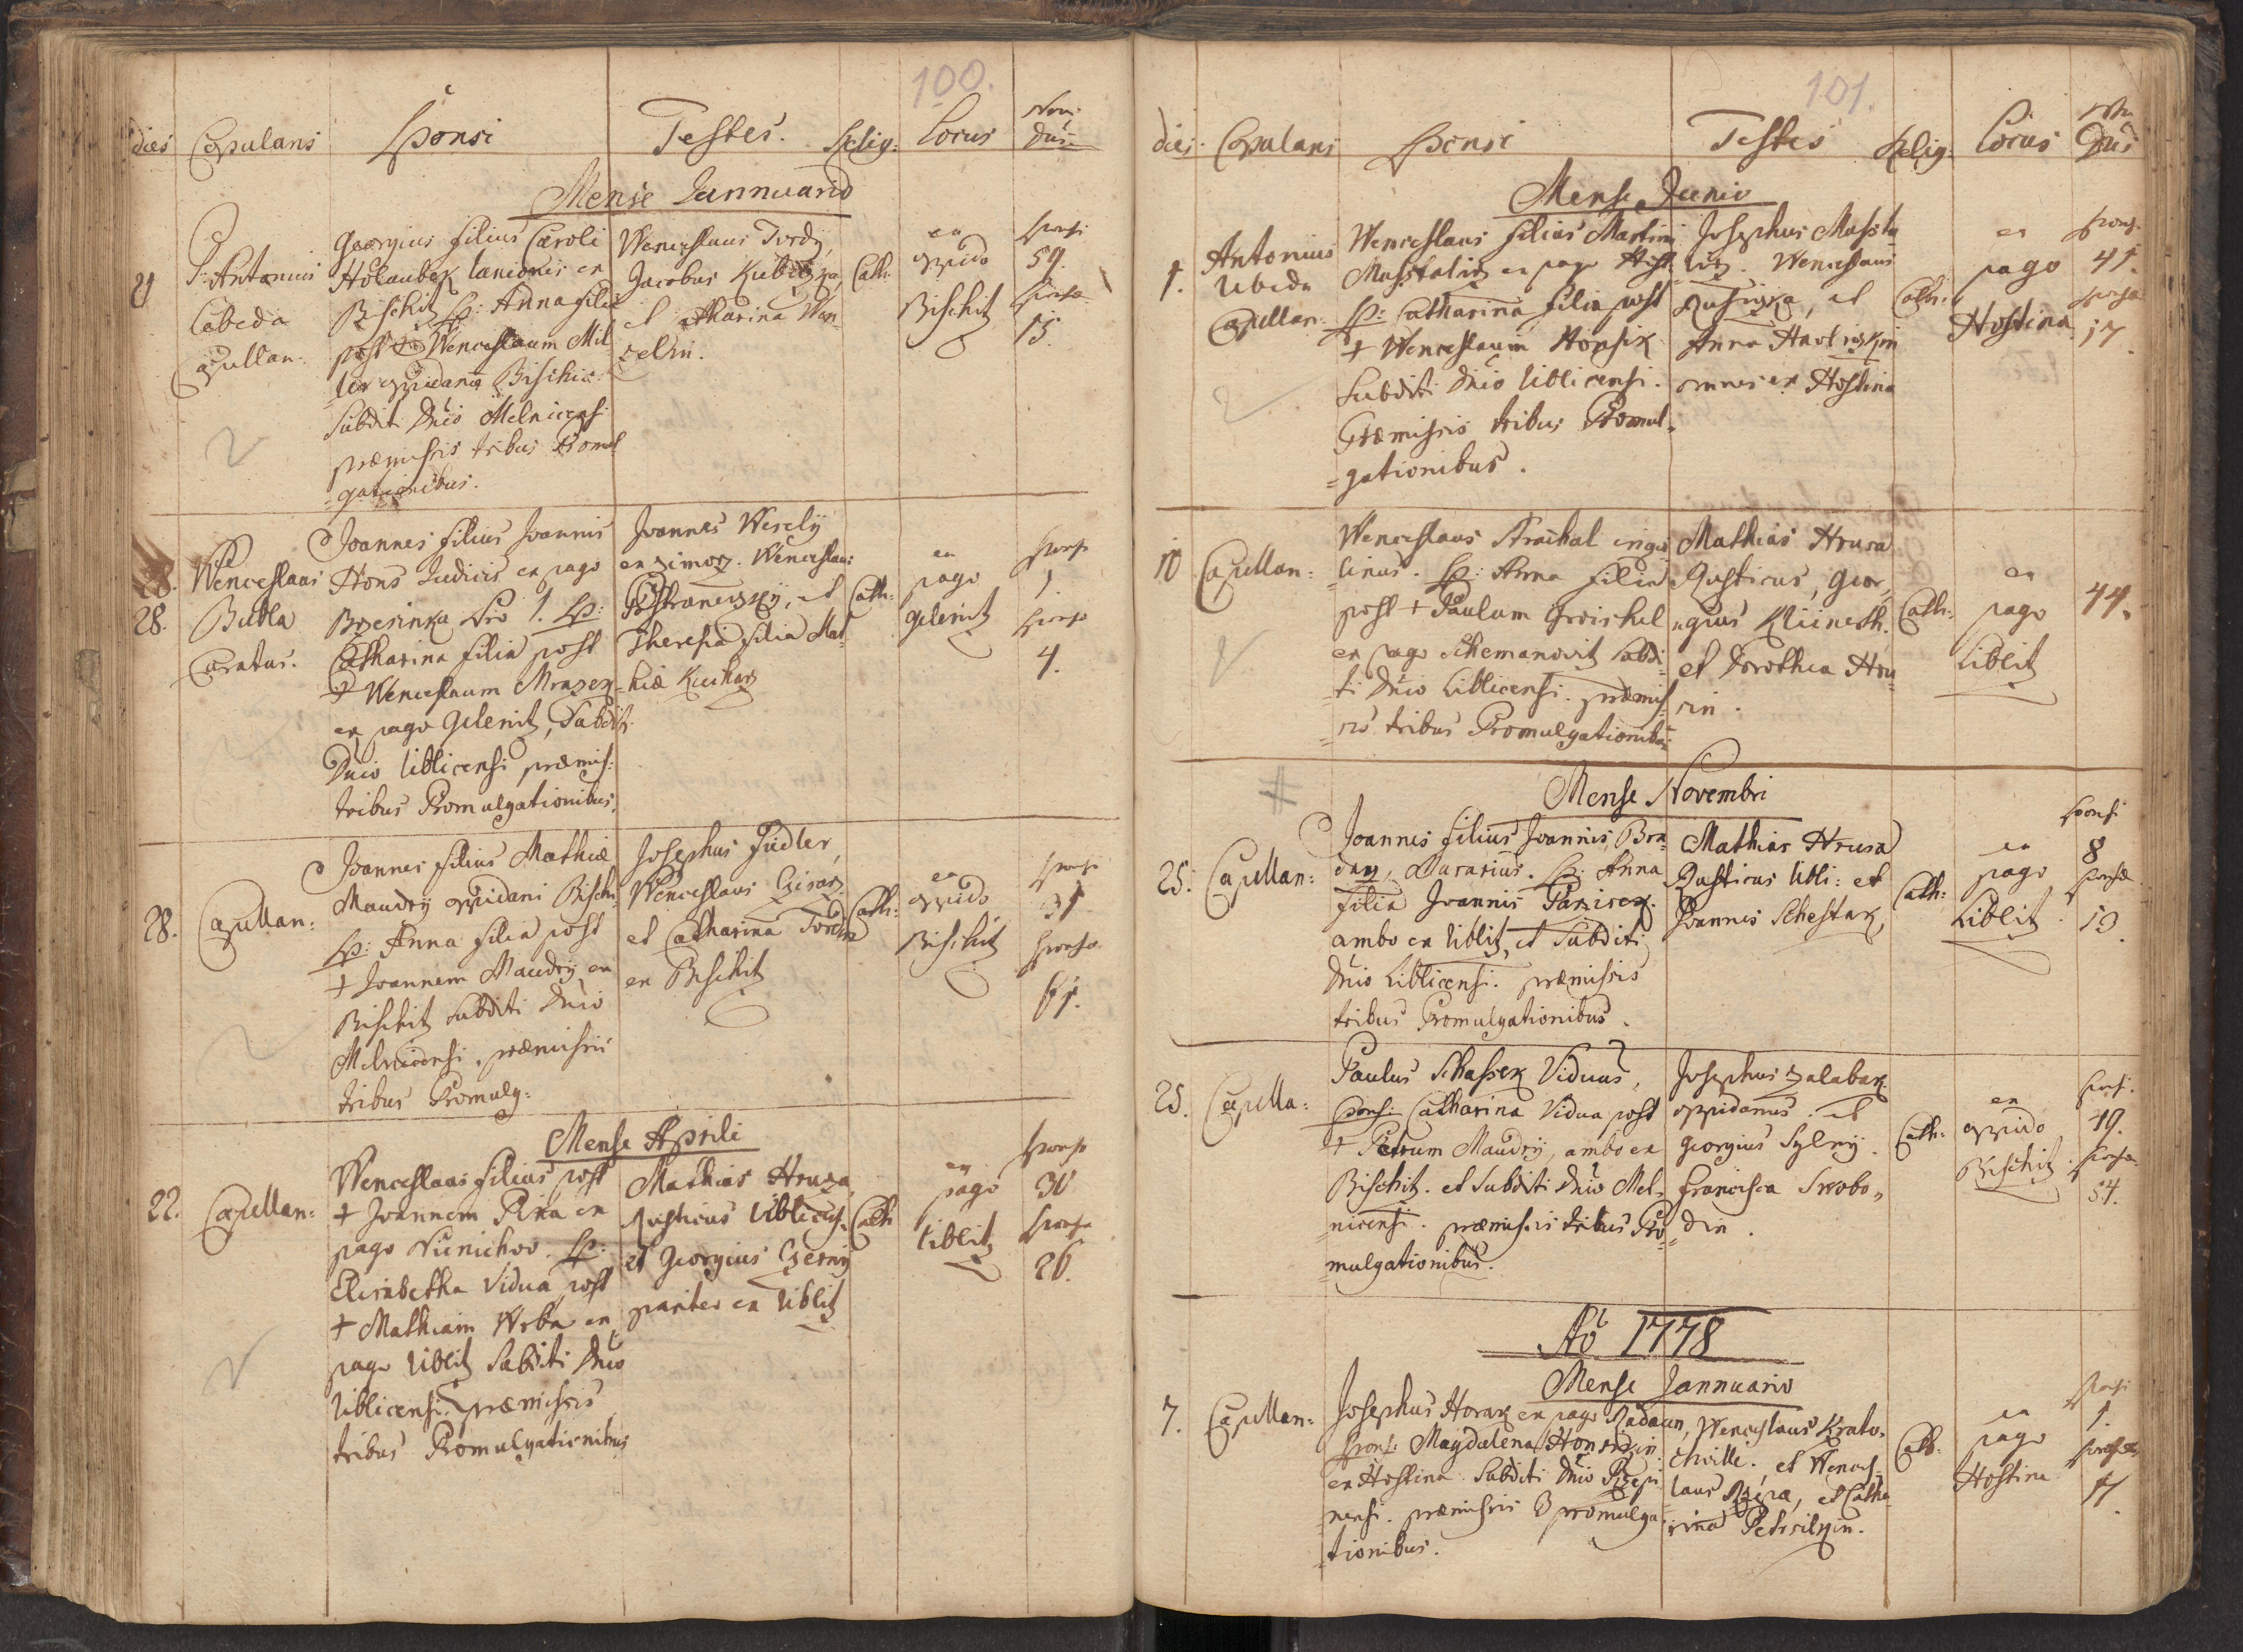 100.
dies Copulans Sponsi Testes. Relig: Locus Nrus Dus
Mense Januario
21
P: Antonius
Lebeda
Capellan:
Georgius filius Caroli
Holaubek lanionis ex
Bischitz Sp: Anna filia
post Wenceslaum Mil
ler oppidanum Bischic:
Subditi Dnio Melnicensi
præmissis tribus Promul
=gationibus.
Wenceslaus Tvrdy,
Jacobus Kubitzka,
et Catharina Wan
zelin.
Cath:
ex
oppido
Bischitz
Sponsi
59.
Sponsæ
15.
28.
28.
Wenceslaus
Bubla
Curatus.
Joannes filius Joannis
Hons Judicis ex pago
Brzesinka Nro 1. Sp:
Catharina filia post
+ Wenceslaum Mrazek
ex pago Gelenitz, Subditi
Dnio Liblicensi præmis:
tribus Promulgationibus.
Joannes Wesely
ex zimorz. Wenceslaus
et
Theresia filia Mat
hiæ Kucharz
Cath:
ex
pago
Gelenitz
Sponsi
1
Sponsæ
4.
28.
Capellan:
Joannes filius Mathiæ
Maudry oppidani Bischi:
Sp: Anna filia post
+ Joannem Maudry ex
Bischitz subditi Dnio
Melnicensi. præmissis
tribus Promulg:
Josephus Fiedler,
Wenceslaus Czisarz
et Catharina
ex Bischitz
Cath:
ex
oppido
Bischitz
Sponsi
31
Sponsæ
61.
Mense Aprili
22.
Capellan:
Wenceslaus filius post
+ Joannem Pika ex
pago Sp:
Elisabetha Vidua post
+ Mathiam Wrba ex
pago Liblitz Subditi Dnio
Liblicensi. præmissis
tribus Promulgationibus
Mathias Hruza
Rusticus Liblicens.
et Georgius Czerny
pariter ex Liblitz
Cath
ex
pago
Liblitz
Sponsi
30
Sponsæ
26.
101.
dies. Copulans Sponsi Testes Relig: Locus Nru Dus
Mense Junio
1.
Antonius
Lebeda
Capellan:
Wenceslaus filius Martini
Masstalirz ex pago Host:
Sp: Catharina filia post
+ Wenceslaum Kopsik
Subditi Dnio Liblicensi.
Præmissis tribus Promul=
=gationibus.
Josephus Massta
lirz. Wenceslaus
Ruziczka, et
Anna Havliczkin
omnes ex Hostina
Cath:
ex
pago
Hostina
Spons.
41.
Sponsa
17
10
Capellan:
Wenceslaus
linus. Sp: Anna filia
post + Paulum
ex pago Schemanovitz Subdi
=ti Dnio Liblicensi. præmis
=sis tribus Promulgationibus
Mathias Hruza
Rusticus, Geor,
=gius
et Dorothea Hru
zin.
Cath:
ex
pago
Liblitz
44.
Mense Novembri
25.
Capellan:
Joannes filius Joannis
Sp: Anna
Filia Joannis Parizek.
ambo ex Liblitz, et Subditi
Dnio Liblicensi. præmissis
tribus Promulgationibus.
Mathias Hruza
Rusticus Libli: et
Joannes Schestak,
Cath:
ex
pago
Liblitz.
Sponsi
8
Sponsæ
13.
25.
Capella:
Paulus Schassek Viduus,
Sponsa Catharina Vidua post
+ Petrum Maudry, ambo ex
Bischitz. et Subditi Dnio Mel=
nicensi. præmissis tribus Pro=
=mulgationibus.
Josephus Zalabak
oppidanus. et
Georgius Sylny.
Francisca Swobo,,
din.
Cath:
ex
oppido
Bischitz.
Sponsi.
19.
Sponsa.
54.
Aō 1778
Mense Jannuario
7.
Capellan:
Josephus Horak ex pago Radaun,
Sponsa Magdalena
ex Hostina Subditi Dnio
nensi. præmissis 3 promulga
=tionibus.
Wenceslaus Krato,
chville. et Wences
laus et Catha
rina Petrzilkin.
Cath:
ex
pago
Hostina
Sponsi
1.
Sponsæ
11.